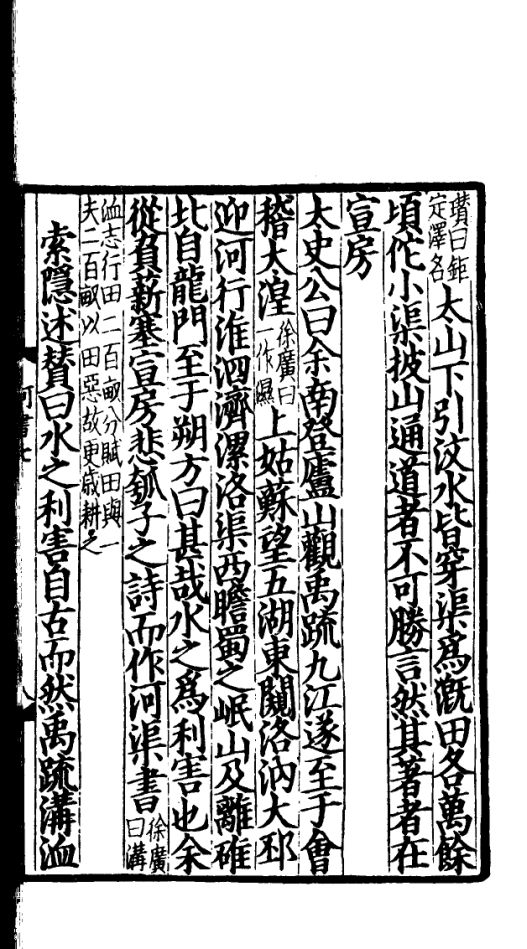 瓚曰鉅定澤名太山下引汶水皆穿渠爲漑田各萬餘
頃佗小渠披山通道者不可勝言然其著者在
宣房
太史公曰余南登廬山觀禹疏九江遂至于會
稽大湟徐廣曰一作濕上姑蘇望五湖東闚洛汭大邳
迎河行淮泗濟漯洛渠西瞻蜀之岷山及離碓
北自龍門至于朔方曰甚哉水之爲利害也余
從負薪塞宣房悲瓠子之詩而作河渠書徐廣曰溝
洫志行田二百畝分賦田與一夫二百畝以田惡故更歲耕之
索隱述賛曰水之利害自古而然禹疏溝洫